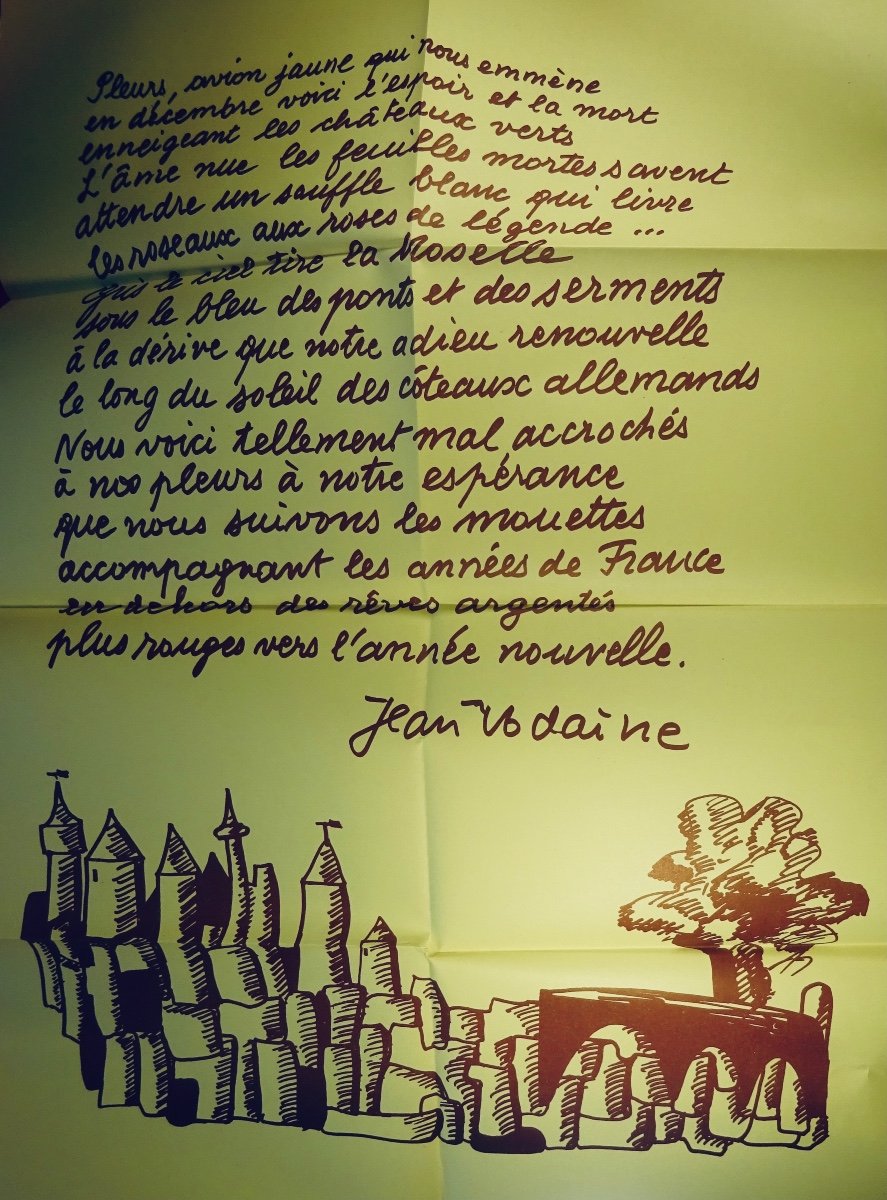 Pleurs, avion jaune qui nous emmène
en décembre voici l'espoir et la mort
enneigeant les châteaux verts
L'âme nue les feuilles mortes savent
attendre un souffle blanc qui livre
les roseaux aux roses de légende ...
que le ciel tire la Moselle
sous le bleu des ponts et des serments
à la dérive que notre adieu renouvelle
le long du soleil des côteaux allemands
Nous voici tellement mal accrochés
à nos pleurs à notre espérance
que nous suivons les mouettes
accompagnant les années de France
en dehors des rêves argentés
plus rouges vers l'année nouvelle.
Jean Vodaine